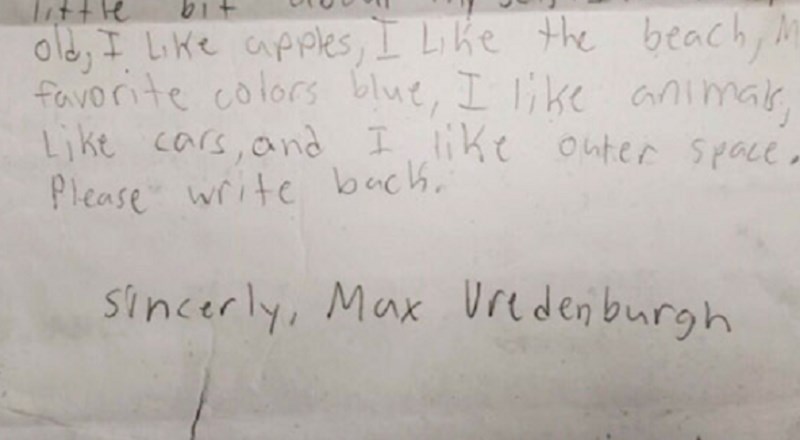 little bit about my self
old, I Like apples, I Like the beach, M
favorite colors blue, I like animals,
Like cars, and I like outer space.
Please write back.
sincerly, Max Vredenburgh